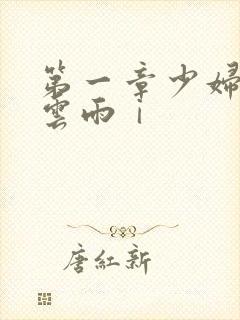 第一章少婦
雲雨｜
唐紅新